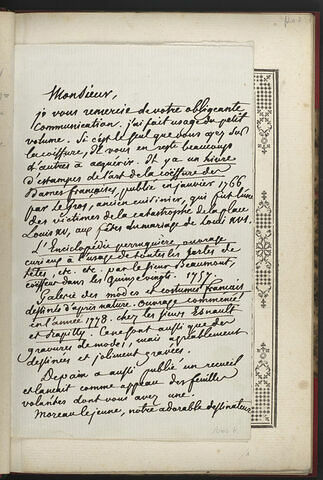 Monsieur,
je vous remercie de votre obligeante
communication. j'ai fait usage du petit
volume. Si c'est le seul que vous ayez sur
la coiffure, Il vous en reste beaucoup
d'autres à acquérir. Il y a un livre
d'estampes de l'art de la coiffure des
Dames françaises, publié en janvier 1766
par Legros, ancien cuisinier, qui fut l'une
des victimes de la catastrophe de la place
Louis XV, aux fêtes du mariage de Louis XVI.
L'Enciclopédie perruquière, ouvrage
curieux à l'usage de toutes les sortes de
têtes, etc. etc. par le sieur Beaumont,
coiffeur dans les Quinze vingts. 1757.
Galerie des modes et costumes français
dessinés d'après nature. Ouvrage commencé
en l'année 1778. chez les sieurs Esnault
et Rapilly. Ce ne sont aussi que des
gravures de modes, mais agréablement
dessinées et joliment gravées.
Depain a aussi publié un recueil
et lançait comme appeau des feuilles
volantes dont vous avez une.
Moreau le jeune, notre adorable dessinateur